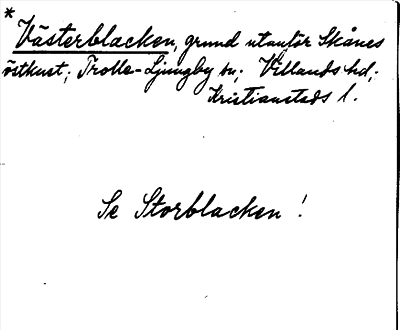 * Västerblacken, grund utanför Skånes
östkust; Trolle-Ljungby sn; Villands hd;
Kristianstads l.
Se Storblacken !